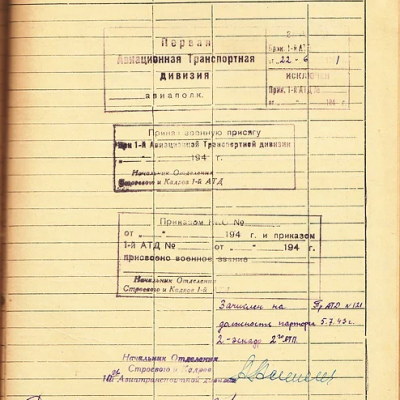 Первая
Авиационная Транспортная
дивизия
авиаполк.
Прик. 1-й АТД
от 22-6
ИСКЛЮЧЕН
Прик. 1-й АТД №
от " " 194 г.
Принял военную присягу
при 1-й Авиационной Транспортной дивизии
" " 194 г.
Начальник Отделения
Строевого и Кадров 1-й АТД
Приказом №
от " " 194 г. и приказом
1-й АТД № от " " 194 г.
присвоено военное звание
Начальник Отделения
Строевого и Кадров 1-й АТД
Зачислен на Пр АТД № 121
должность 5.7.43 г.
2-
Начальник Отделения
Строевого и Кадров
1й Авиатранспортной дивизии